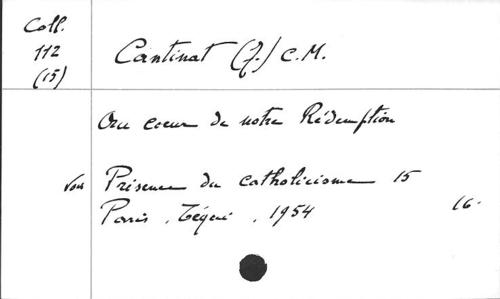 Coll.
112
(15)
Cantinat (J.) C.M.
Au coeur de notre Rédemption
Voir Présence du catholicisme 15
Paris, Téqui, 1954 16°